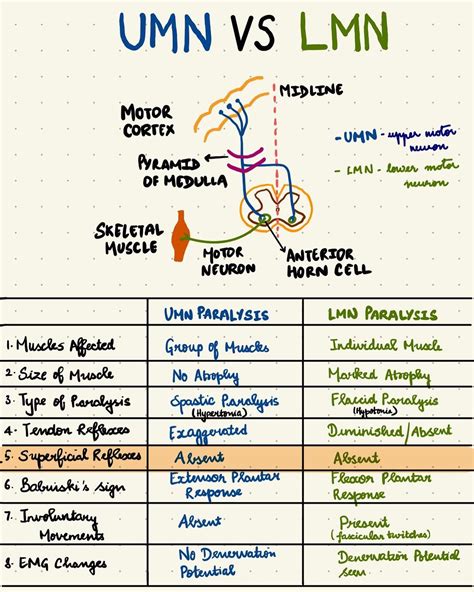 UMN VS LMN
MIDLINE
MOTOR
CORTEX
- UMN - upper motor
neuron
- LMN - lower motor
neuron
PYRAMID
OF MEDULLA
SKELETAL
MUSCLE
MOTOR
NEURON
ANTERIOR
HORN CELL
UMN PARALYSIS
LMN PARALYSIS
1. Muscles Affected
Group of Muscles
Individual Muscle
2. Size of Muscle
No Atrophy
Marked Atrophy
3. Type of Paralysis
Spastic Paralysis
(Hypertonia)
Flacid Paralysis
(Hypotonia)
4. Tendon Reflexes
Exaggerated
Diminished/Absent
5. Superficial Reflexes
Absent
Absent
6. Babinski's sign
Extensor Plantar
Response
Flexor Plantar
Response
7. Involuntary
Movements
Absent
Present
(fascicular twitches)
8. EMG Changes
No Denervation
Potential
Denervation Potential
seen